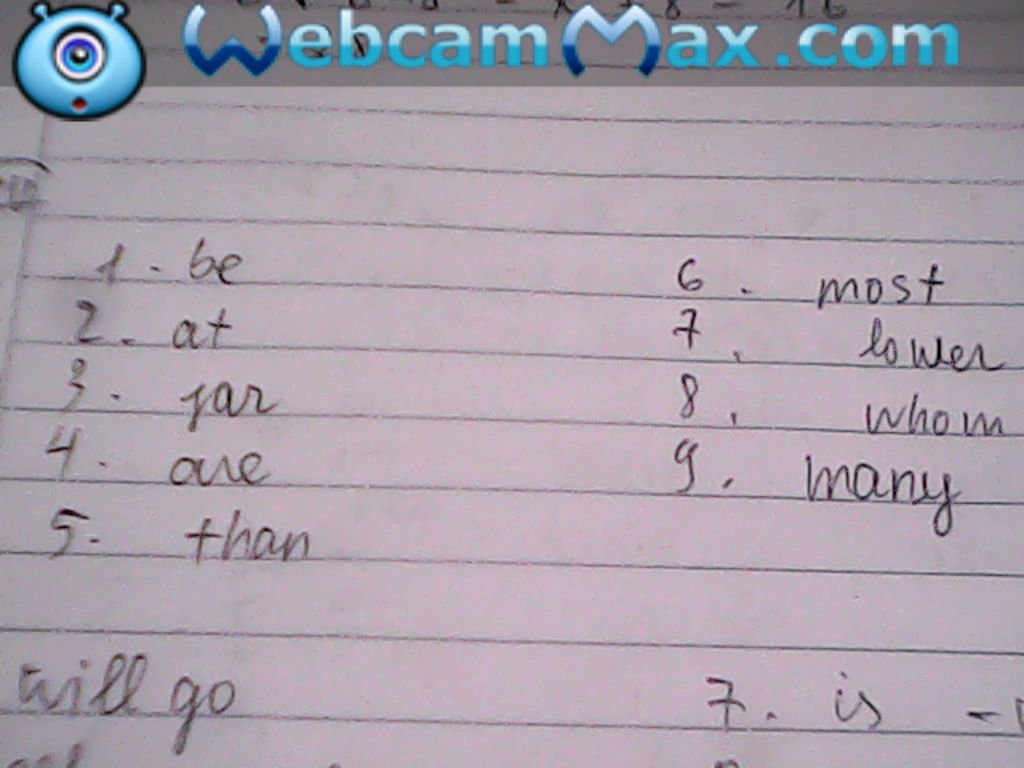 WebcamMax.com
1. be
2. at
3. far
4. are
5. than
6. most
7. lower
8. whom
9. many
will go
7. is